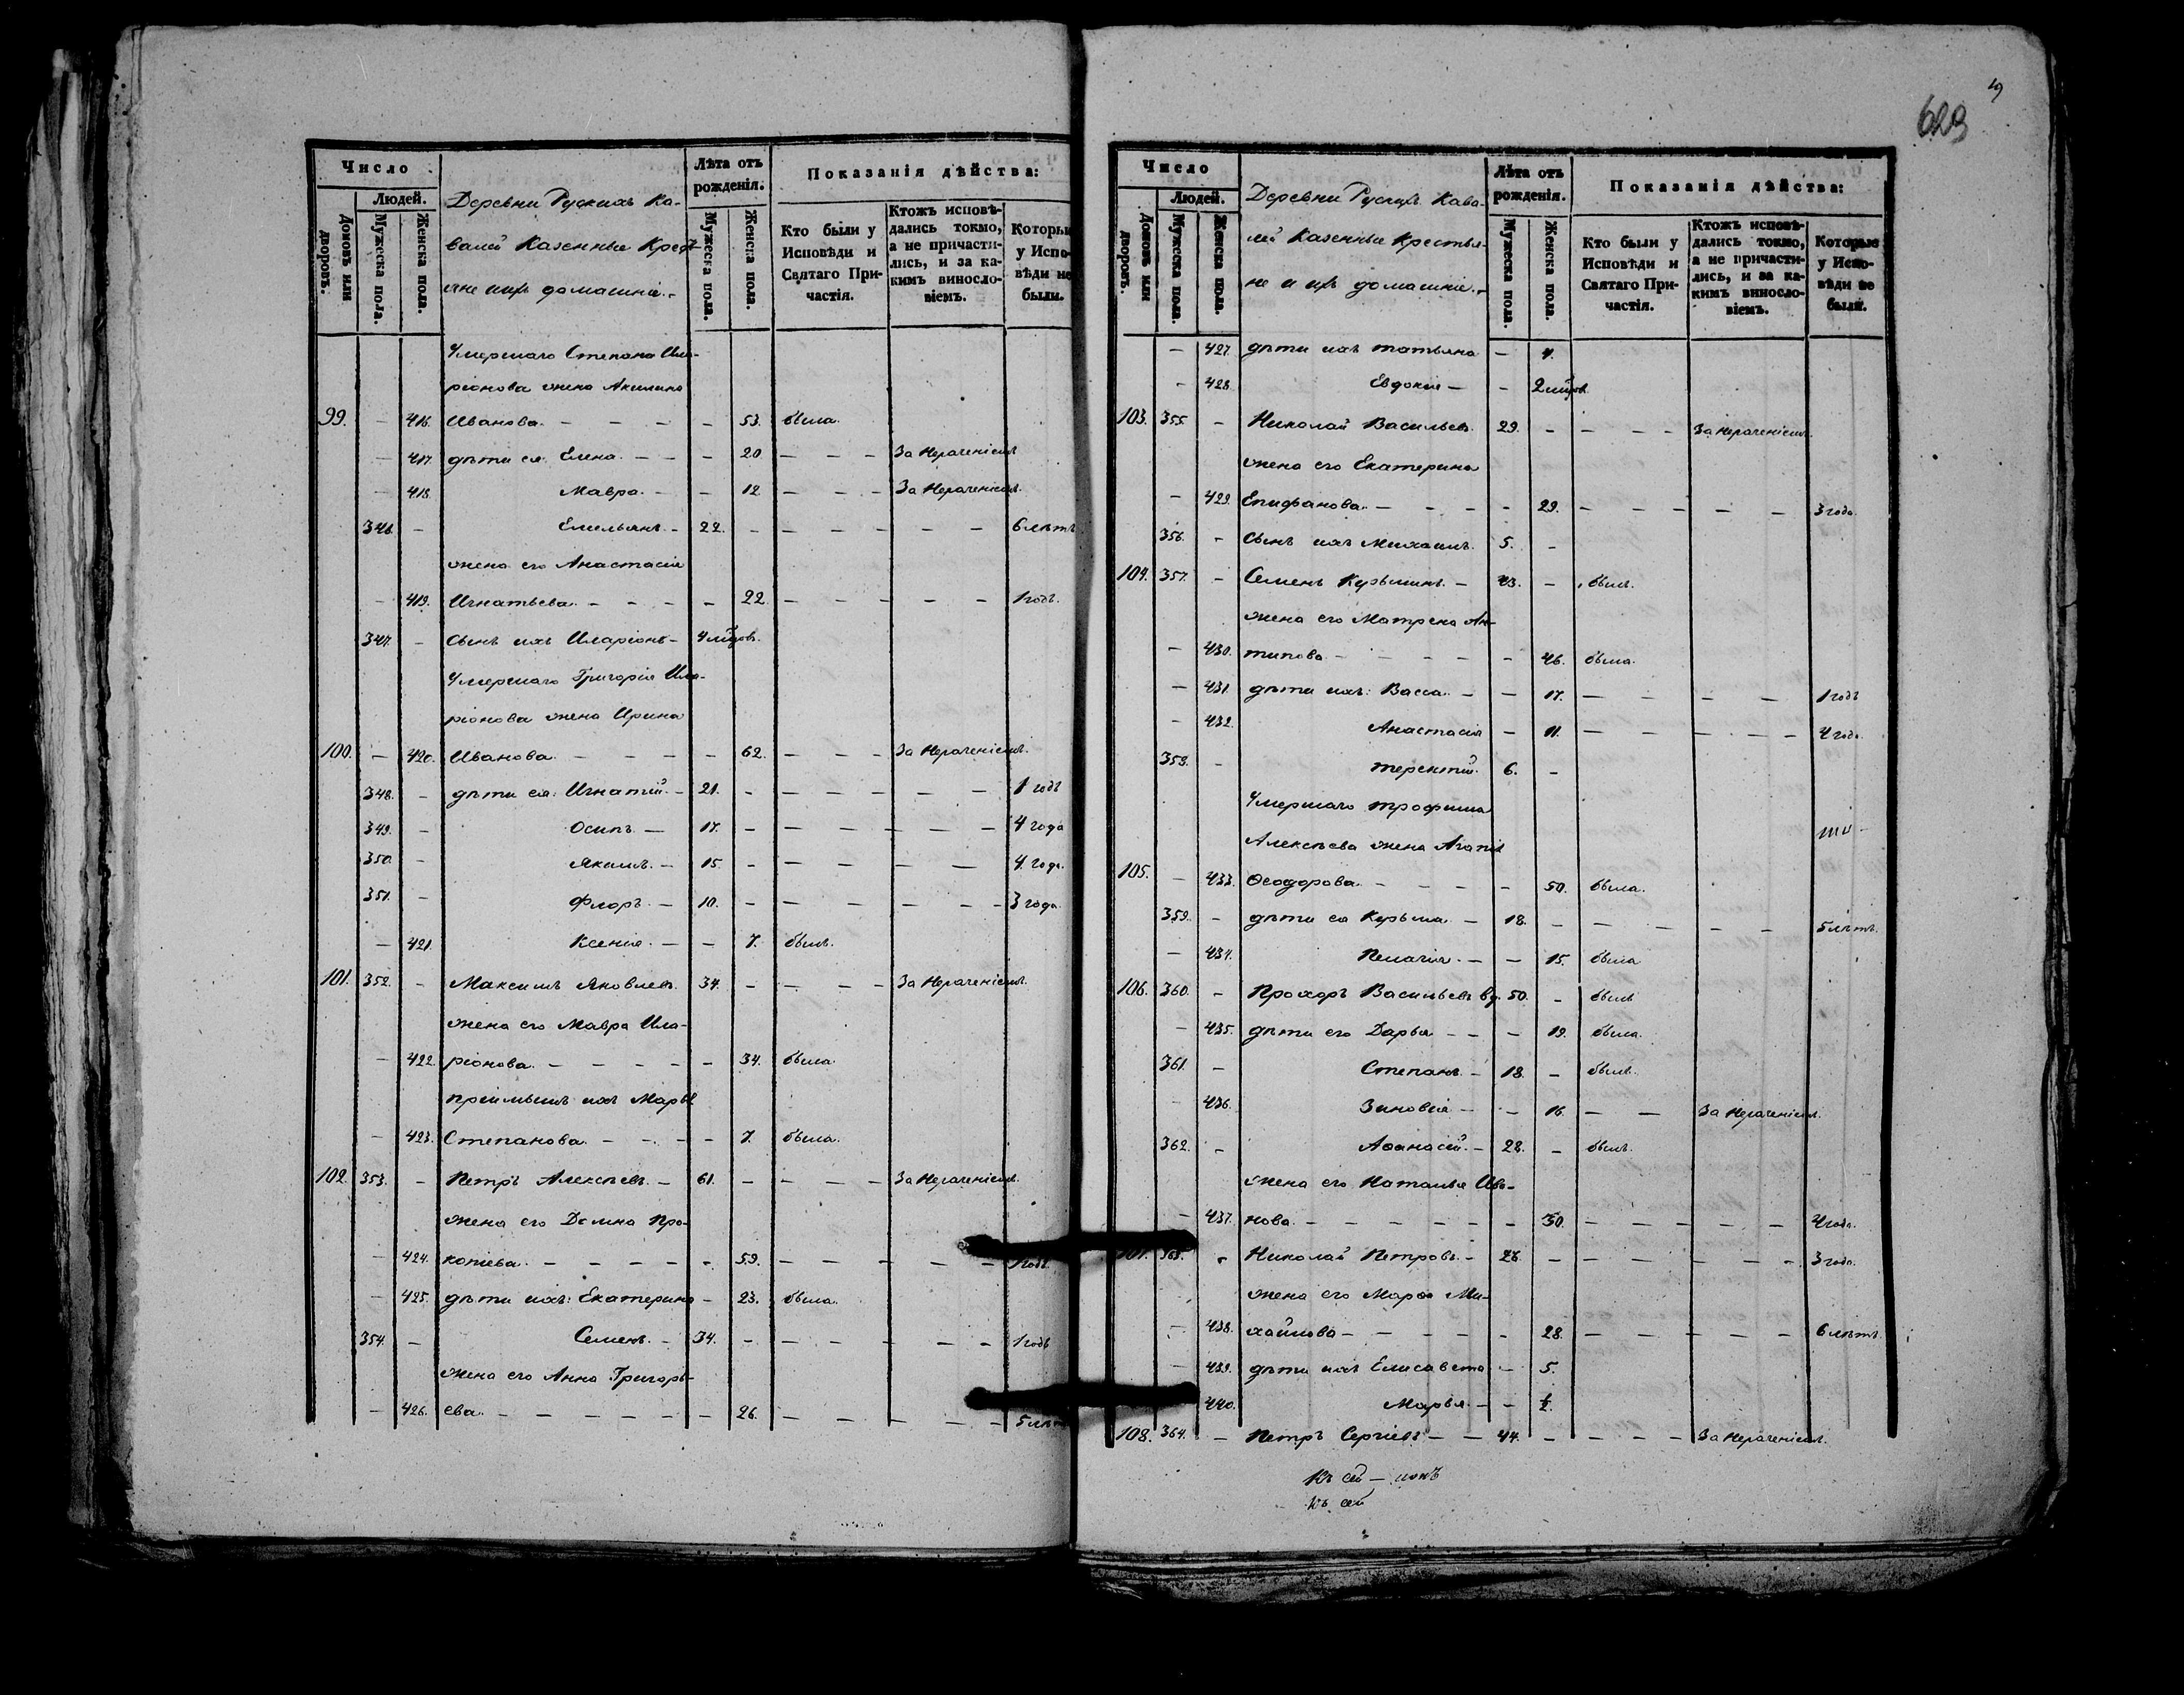 Число
Людей.
Домовъ или дворовъ.
Мужеска пола.
Женска пола.
Деревни Рускихъ Ка-
валей Казенные Кресть-
яне и ихъ домашніе.
Лѣта отъ рожденія.
Мужеска пола.
Женска пола.
Показанія дѣйства:
Кто были у Исповѣди и Святаго Причастія.
Ктожъ исповѣдались токмо, а не причастились, и за какимъ винословіемъ.
Которые у Исповѣди не были.
Умершаго Степана Ила-
ріонова жена Акилина
99. — 416. Иванова. — — — — 53. была.
— 417. дѣти ея: Елена. — — — 20 — — — За Нераченіемъ
— 418. Мавра. — — 12 — — — За Нераченіемъ.
346. — Емельянъ. — 22. — — — — — — 6 лѣтъ
жена его Анастасія
— 419. Игнатьева. — — — — 22. — — — — — 1 годъ.
347. — Сынъ ихъ Иларіонъ — 4 мѣсяцовъ.
Умершаго Григорія Ила-
ріонова жена Ирина
100. — 420. Иванова. — — — — 62. — — — За Нераченіемъ.
348. — дѣти ея: Игнатій. — 21. — — — — — — 1 годъ
349. — Осипъ. — 17. — — — — — — 4 года
350. — Якимъ. — 15. — — — — — 4 года.
351. — Флоръ. — 10. — — — — — — 3 года
— 421. Ксенія. — — 7. былъ.
101. 352. — Максимъ Яковлевъ. 34. — — — — За Нераченіемъ.
жена его Мавра Ила-
— 422. ріонова. — — — — — 34. была.
пріимышъ ихъ Марья
— 423. Степанова. — — — — 7. была.
102. 353. — Петръ Алексѣевъ. — 61. — — — — За Нераченіемъ.
жена его Домна Про-
— 424. копіева. — — — — — 59. — — — — — 1 годъ.
— 425. дѣти ихъ: Екатерина — 23. была.
354. — Семенъ. — 34. — — — — — — 1 годъ
жена его Анна Григорь-
— 426. ева. — — — — — — 26. — — — — — 5 лѣтъ
19
629
Число
Людей.
Домовъ или дворовъ.
Мужеска пола.
Женска пола.
Деревни Рускихъ Кава-
лей Казенные Крестья-
не и ихъ домашніе.
Лѣта отъ рожденія.
Мужеска пола.
Женска пола.
Показанія дѣйства:
Кто были у Исповѣди и Святаго Причастія.
Ктожъ исповѣдались токмо, а не причастились, и за какимъ винословіемъ.
Которые у Исповѣди не были.
— 427. дѣти ихъ Татьяна —
— 428. Евдокія — — 2 мѣсяцов.
103. 355. — Николай Васильевъ. 29. — — — — За Нераченіемъ.
жена его Екатерина
— 429. Епифанова. — — — — 29. — — — — — 3 года.
356. — Сынъ ихъ Михаилъ. 5. —
104. 357. — Семенъ Кузьминъ. — 43. — былъ.
жена его Матрена Ан-
— 430. типова. — — — — — 46. была.
— 431. дѣти ихъ: Васса. — — 17. — — — — 1 годъ
— 432. Анастасія — 11. — — — — — 4 года.
358. — Терентій. 6. —
Умершаго Трофима
Алексѣева жена Агапія
105. — 433. Ѳеодорова. — — — — 50. была.
359. — дѣти ея Кузьма. — 18. — — — — — 5 лѣтъ.
— 434. Пелагія. — — 15. была
106. 360. — Прохоръ Васильевъ вд. 50. — былъ
— 435. дѣти его Дарья — — — 19. была.
361. — Степанъ. — 18. — былъ.
— 436. Зиновія — — 16. — — За Нераченіемъ.
362. — Аѳанасій. — 28. — былъ.
жена его Наталья Ива-
— 437. нова. — — — — — — 30. — — — — — 4 года.
107. 363. — Николай Петровъ. — 28. — — — — — — 3 года.
жена его Марѳа Ми-
— 438. хайлова — — — — — 28. — — — — — 6 лѣтъ.
— 439. дѣти ихъ Елисавета — 5.
440. Марья. — — ½.
108. 364. — Петръ Сергіевъ — — 44. — — — — За Нераченіемъ.
Къ сей
Къ сей